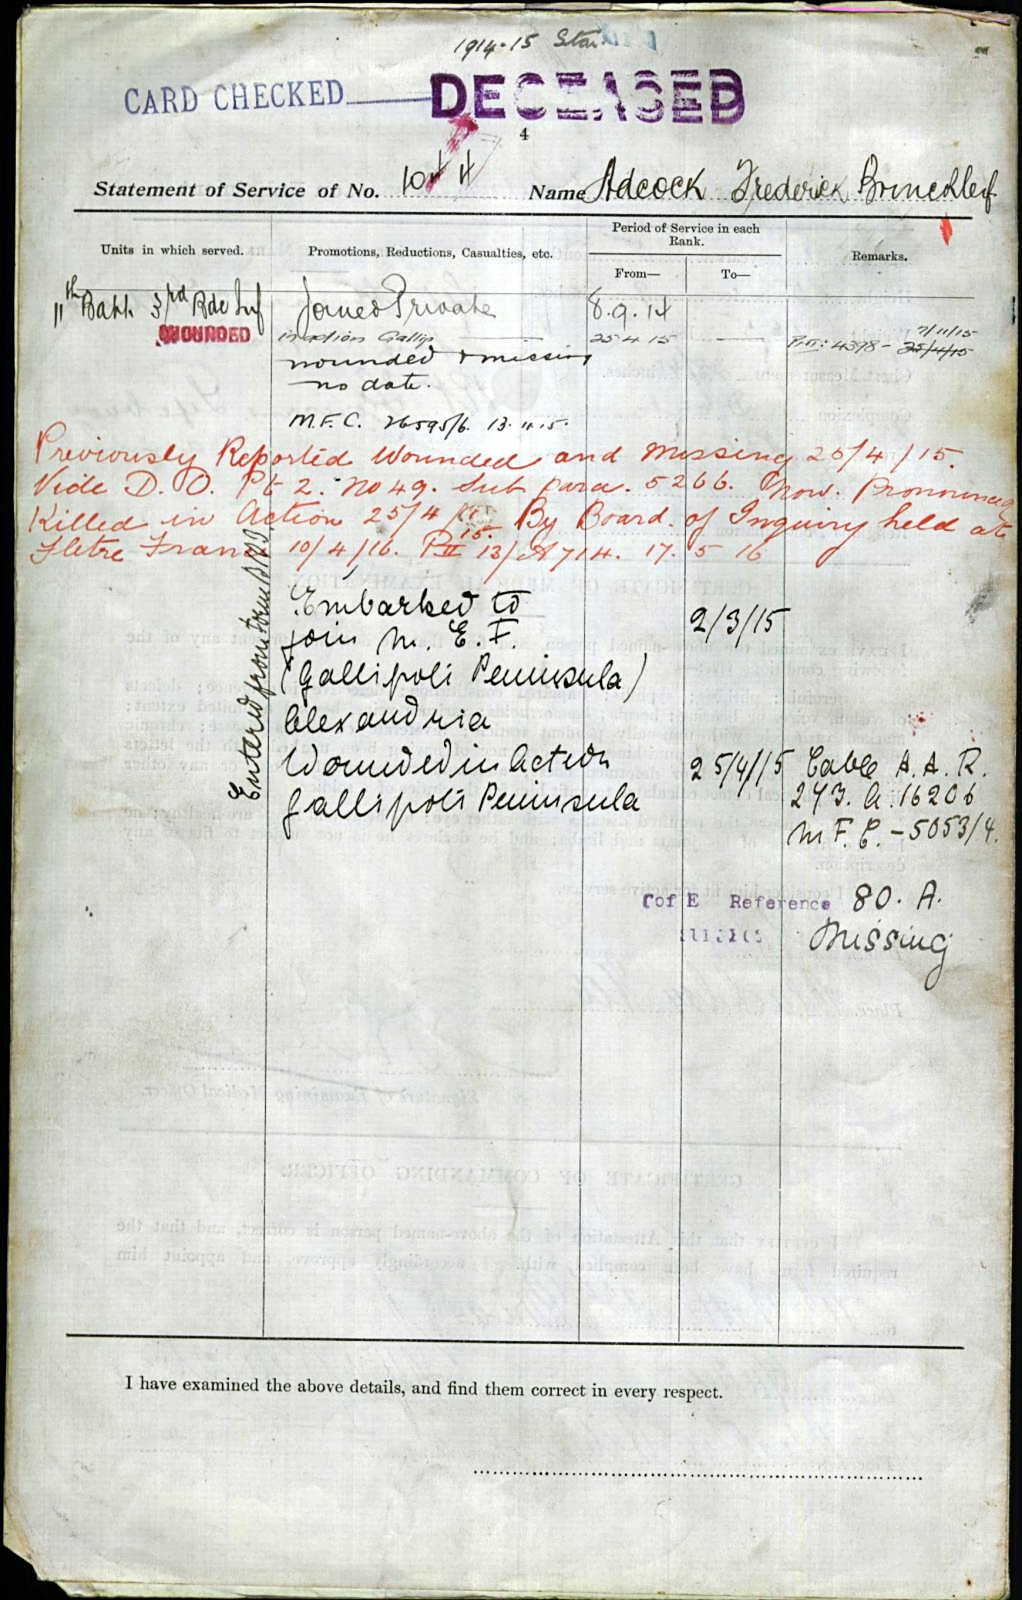 1914-15 Star
CARD CHECKED DECEASED
4
Statement of Service of No. 1044 Name Adcock Frederick Brinchley
Units in which served. Promotions, Reductions, Casualties, etc. Period of Service in each Rank. Remarks.
From— To—
11th Battn 3rd Bde Inf Joined Private 8.9.14
WOUNDED in action Gallip 25 4 15 PII: 4398 - 25/4/15 7/11/15
wounded & missing
no date.
M.F.C. 26595/6. 13.11.15.
Previously Reported Wounded and Missing 25/4/15.
Vide D.O. Pt 2. No 49. Sub para. 5266. Now. Pronounced
Killed in Action 25/4/15. By Board. of Inquiry held at
Fletre France 10/4/16. PII 13/A714. 17. 5 16
Entered from Form B103
Embarked to
join M. E. F. 2/3/15
(Gallipoli Peninsula)
Alexandria
Wounded in Action 25/4/15 Cable A.A.R.
Gallipoli Peninsula 273. A. 16206
M.F.C. - 5053/4.
C of E Reference 80. A.
Missing
I have examined the above details, and find them correct in every respect.